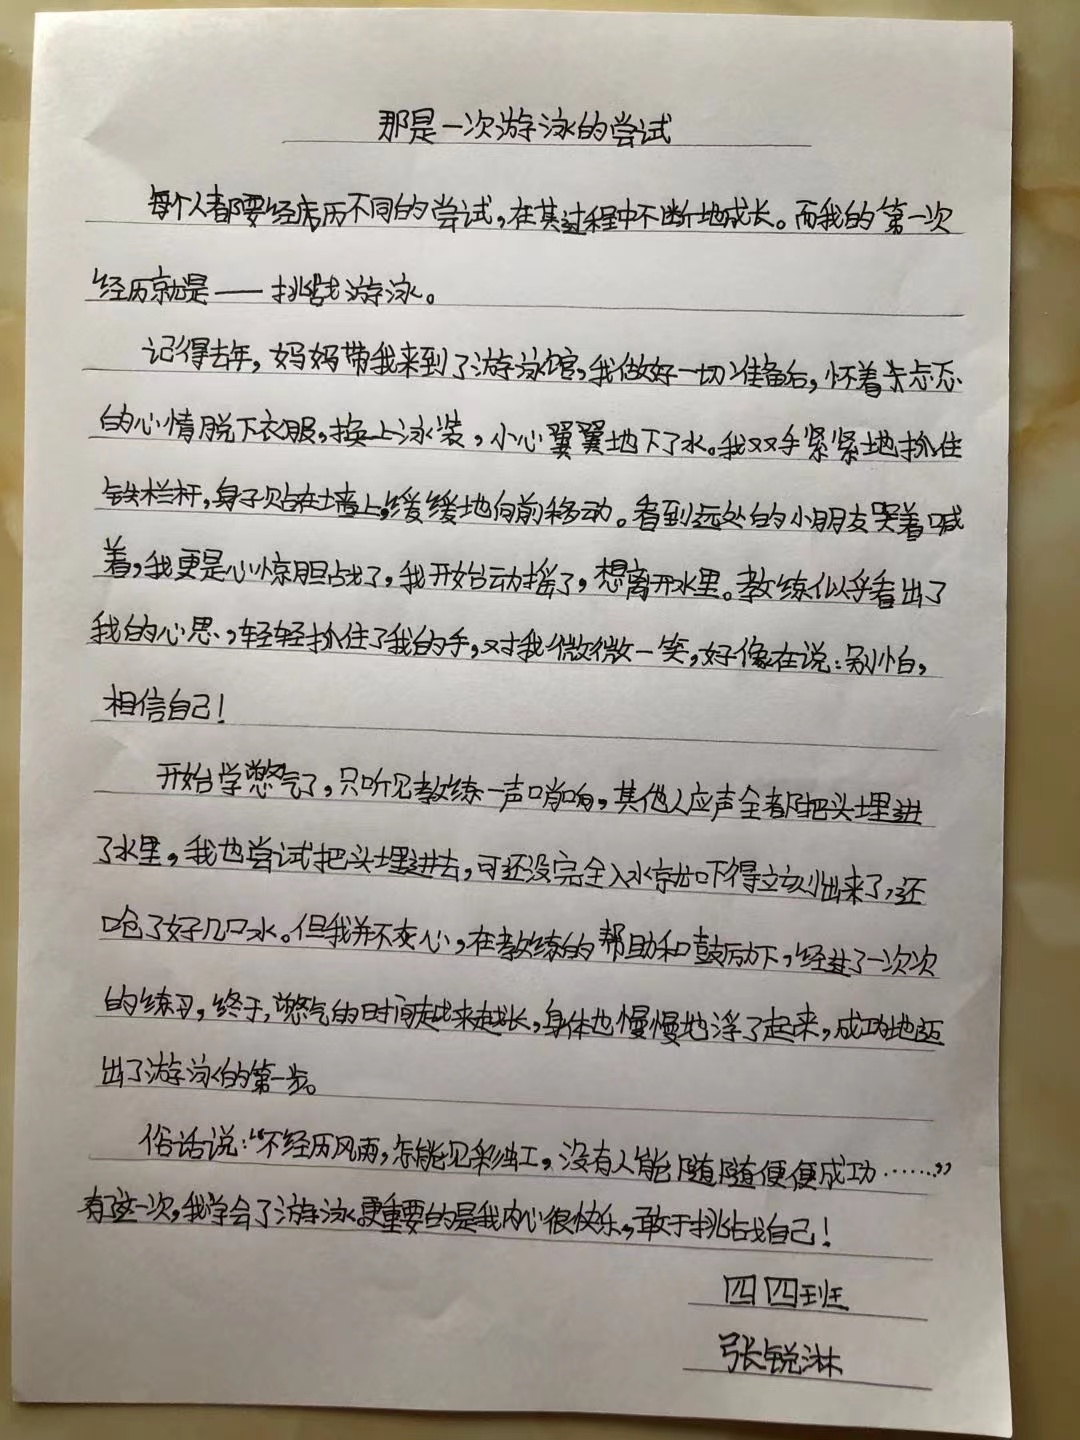 那是一次游泳的尝试
每个人都要经历不同的尝试，在其过程中不断地成长。而我的第一次
经历就是——挑战游泳。
记得去年，妈妈带我来到了游泳馆，我做好一切准备后，怀着忐忑
的心情脱下衣服，换上泳装，小心翼翼地下了水。我双手紧紧地抓住
铁栏杆，身子贴在墙上，缓缓地向前移动。看到远处的小朋友哭着喊
着，我更是心惊胆战了，我开始动摇了，想离开水里。教练似乎看出了
我的心思，轻轻抓住了我的手，对我微微一笑，好像在说：别怕，
相信自己！
开始学憋气了，只听见教练一声哨响，其他人应声全都把头埋进
了水里，我也尝试把头埋进去，可还没完全入水就吓得立刻出来了，还
呛了好几口水。但我并不灰心，在教练的帮助和鼓励下，经过了一次次
的练习，终于，憋气的时间越来越长，身体也慢慢地浮了起来，成功地迈
出了游泳的第一步。
俗话说：“不经历风雨，怎能见彩虹，没有人能随随便便成功……”
有了这一次，我学会了游泳。更重要的是我内心很快乐，敢于挑战自己！
四四班
张锐淋